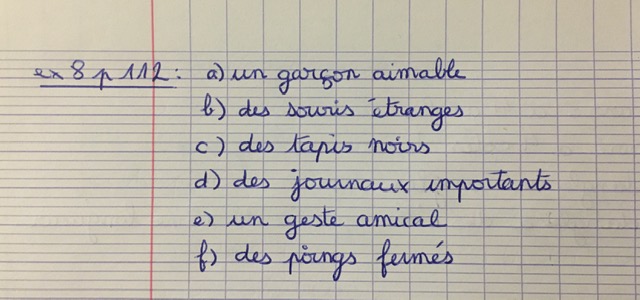 ex 8 p 112 : a) un garçon aimable
b) des souris étranges
c) des tapis noirs
d) des journaux importants
e) un geste amical
f) des poings fermés